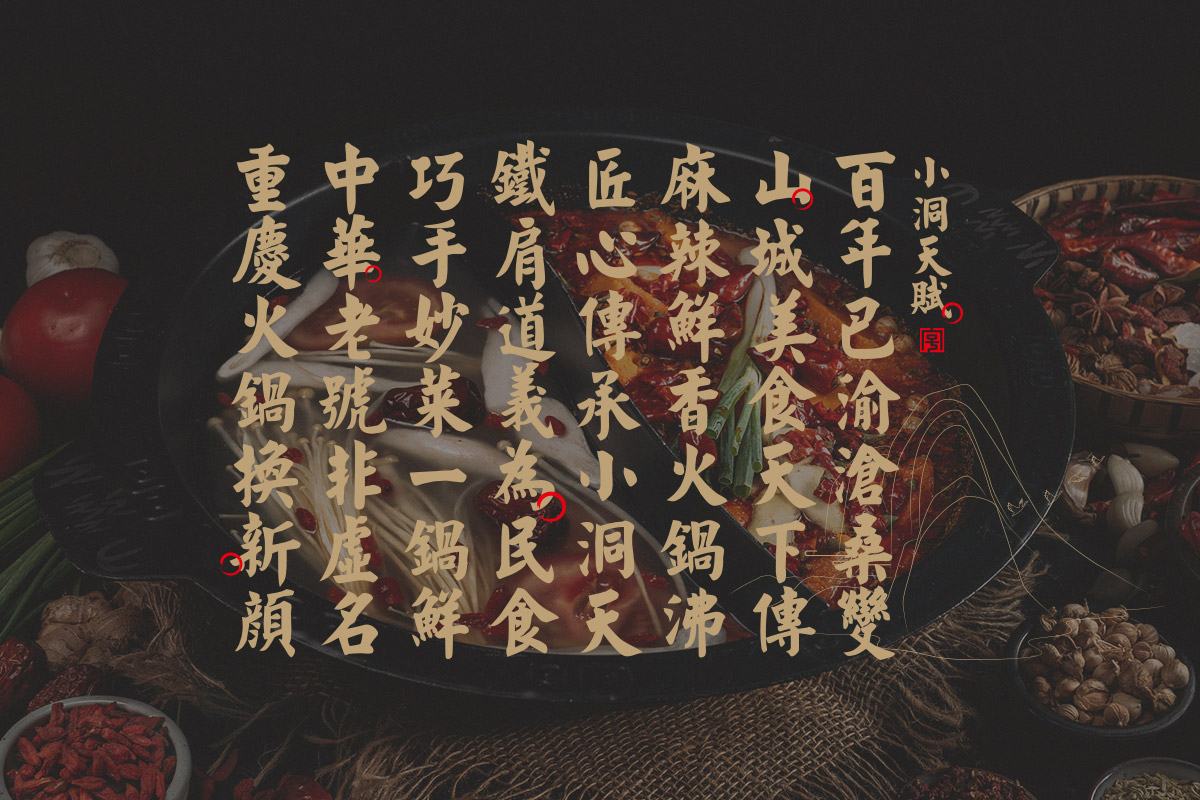 小洞天賦
百年已渝滄桑變
山城美食天下傳
麻辣鮮香火鍋沸
匠心傳承小洞天
鐵肩道義為民食
巧手妙菜一鍋鮮
中華老號非虛名
重慶火鍋換新顏